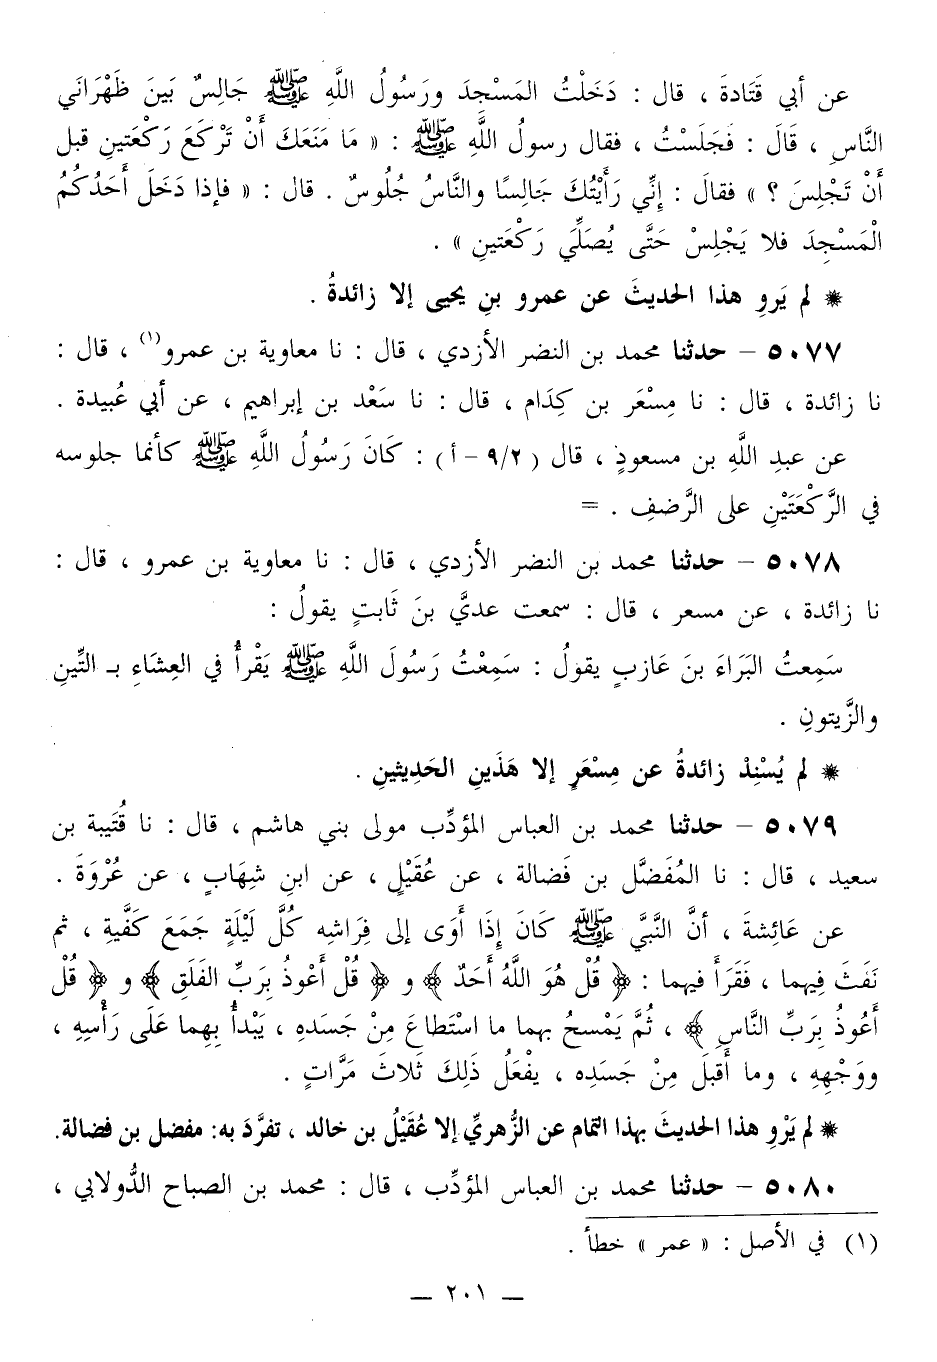 عن أبي قَتَادةَ ، قال : دَخَلْتُ المَسْجِدَ ورَسُولُ اللَّهِ ﷺ جَالِسٌ بَينَ ظَهْرَانَي
النَّاسِ ، قَالَ : فَجَلَسْتُ ، فقال رسولُ اللَّهِ ﷺ : « مَا مَنَعَكَ أَنْ تَرْكَعَ رَكْعَتينِ قبل
أَنْ تَجْلِسَ ؟ » فقالَ : إِنِّي رَأَيْتُكَ جَالِسًا والنَّاسُ جُلُوسٌ . قال : « فإذا دَخَلَ أَحَدُكُمُ
الْمَسْجِدَ فلا يَجْلِسْ حَتَّى يُصَلِّي رَكْعَتينِ » .
* لم يَروِ هذا الحديثَ عن عمرو بنِ يحيى إلا زائدةُ .
٥٠٧٧ – حدثنا محمد بن النضر الأزدي ، قال : نا معاوية بن عمرو(١) ، قال :
نا زائدة ، قال : نا مِسْعَر بن كِدَام ، قال : نا سَعْد بن إبراهيم ، عن أبي عُبيدة .
عن عبدِ اللَّهِ بن مسعودٍ ، قال (٩/٢ – أ) : كَانَ رَسُولُ اللَّهِ ﷺ كأنما جلوسه
في الرَّكْعَتَيْنِ على الرَّضفِ . =
٥٠٧٨ – حدثنا محمد بن النضر الأزدي ، قال : نا معاوية بن عمرو ، قال :
نا زائدة ، عن مسعر ، قال : سمعت عديَّ بنَ ثَابتٍ يقولُ :
سَمِعتُ البَرَاءَ بنَ عَازبٍ يقولُ : سَمِعْتُ رَسُولَ اللَّهِ ﷺ يَقْرأُ في العِشَاءِ بـ التِّينِ
والزَّيتونِ .
* لم يُسْنِدْ زائدةُ عن مِسْعَرٍ إلا هَذَينِ الحَدِيثينِ .
٥٠٧٩ – حدثنا محمد بن العباس المؤدِّب مولى بني هاشم ، قال : نا قُتَيبة بن
سعيد ، قال : نا المُفَضَّل بن فَضالة ، عن عُقَيْلٍ ، عن ابنِ شِهَابٍ ، عن عُرْوَةَ .
عن عَائِشةَ ، أنَّ النَّبيَّ ﷺ كَانَ إِذَا أَوَى إلى فِرَاشِه كُلَّ لَيْلَةٍ جَمَعَ كَفَّيةِ ، ثم
نَفَثَ فِيهما ، فَقَرَأَ فيهما : ﴿ قُلْ هُوَ اللَّهُ أَحَدٌ ﴾ و ﴿ قُلْ أَعْوذُ بِرَبِّ الفَلَقِ ﴾ و ﴿ قُلْ
أَعُوذُ بِرَبِّ النَّاسِ ﴾ ، ثُمَّ يَمْسحُ بهما ما اسْتَطاعَ مِنْ جَسَدِه ، يَبْدأُ بِهِما عَلَى رَأْسِهِ ،
ووَجْهِهِ ، وما أَقبلَ مِنْ جَسَدِه ، يفْعَلُ ذَلِكَ ثَلاثَ مَرَّاتٍ .
* لم يَرْوِ هذا الحديثَ بهذا التمام عن الزُّهريِّ إلا عُقَيْلُ بن خالد ، تفرَّدَ به: مفضل بن فضالة.
٥٠٨٠ – حدثنا محمد بن العباس المؤدِّب ، قال : محمد بن الصباح الدُّولابي ،
(١) في الأصل : « عمر » خطأ .
– ٢٠١ –